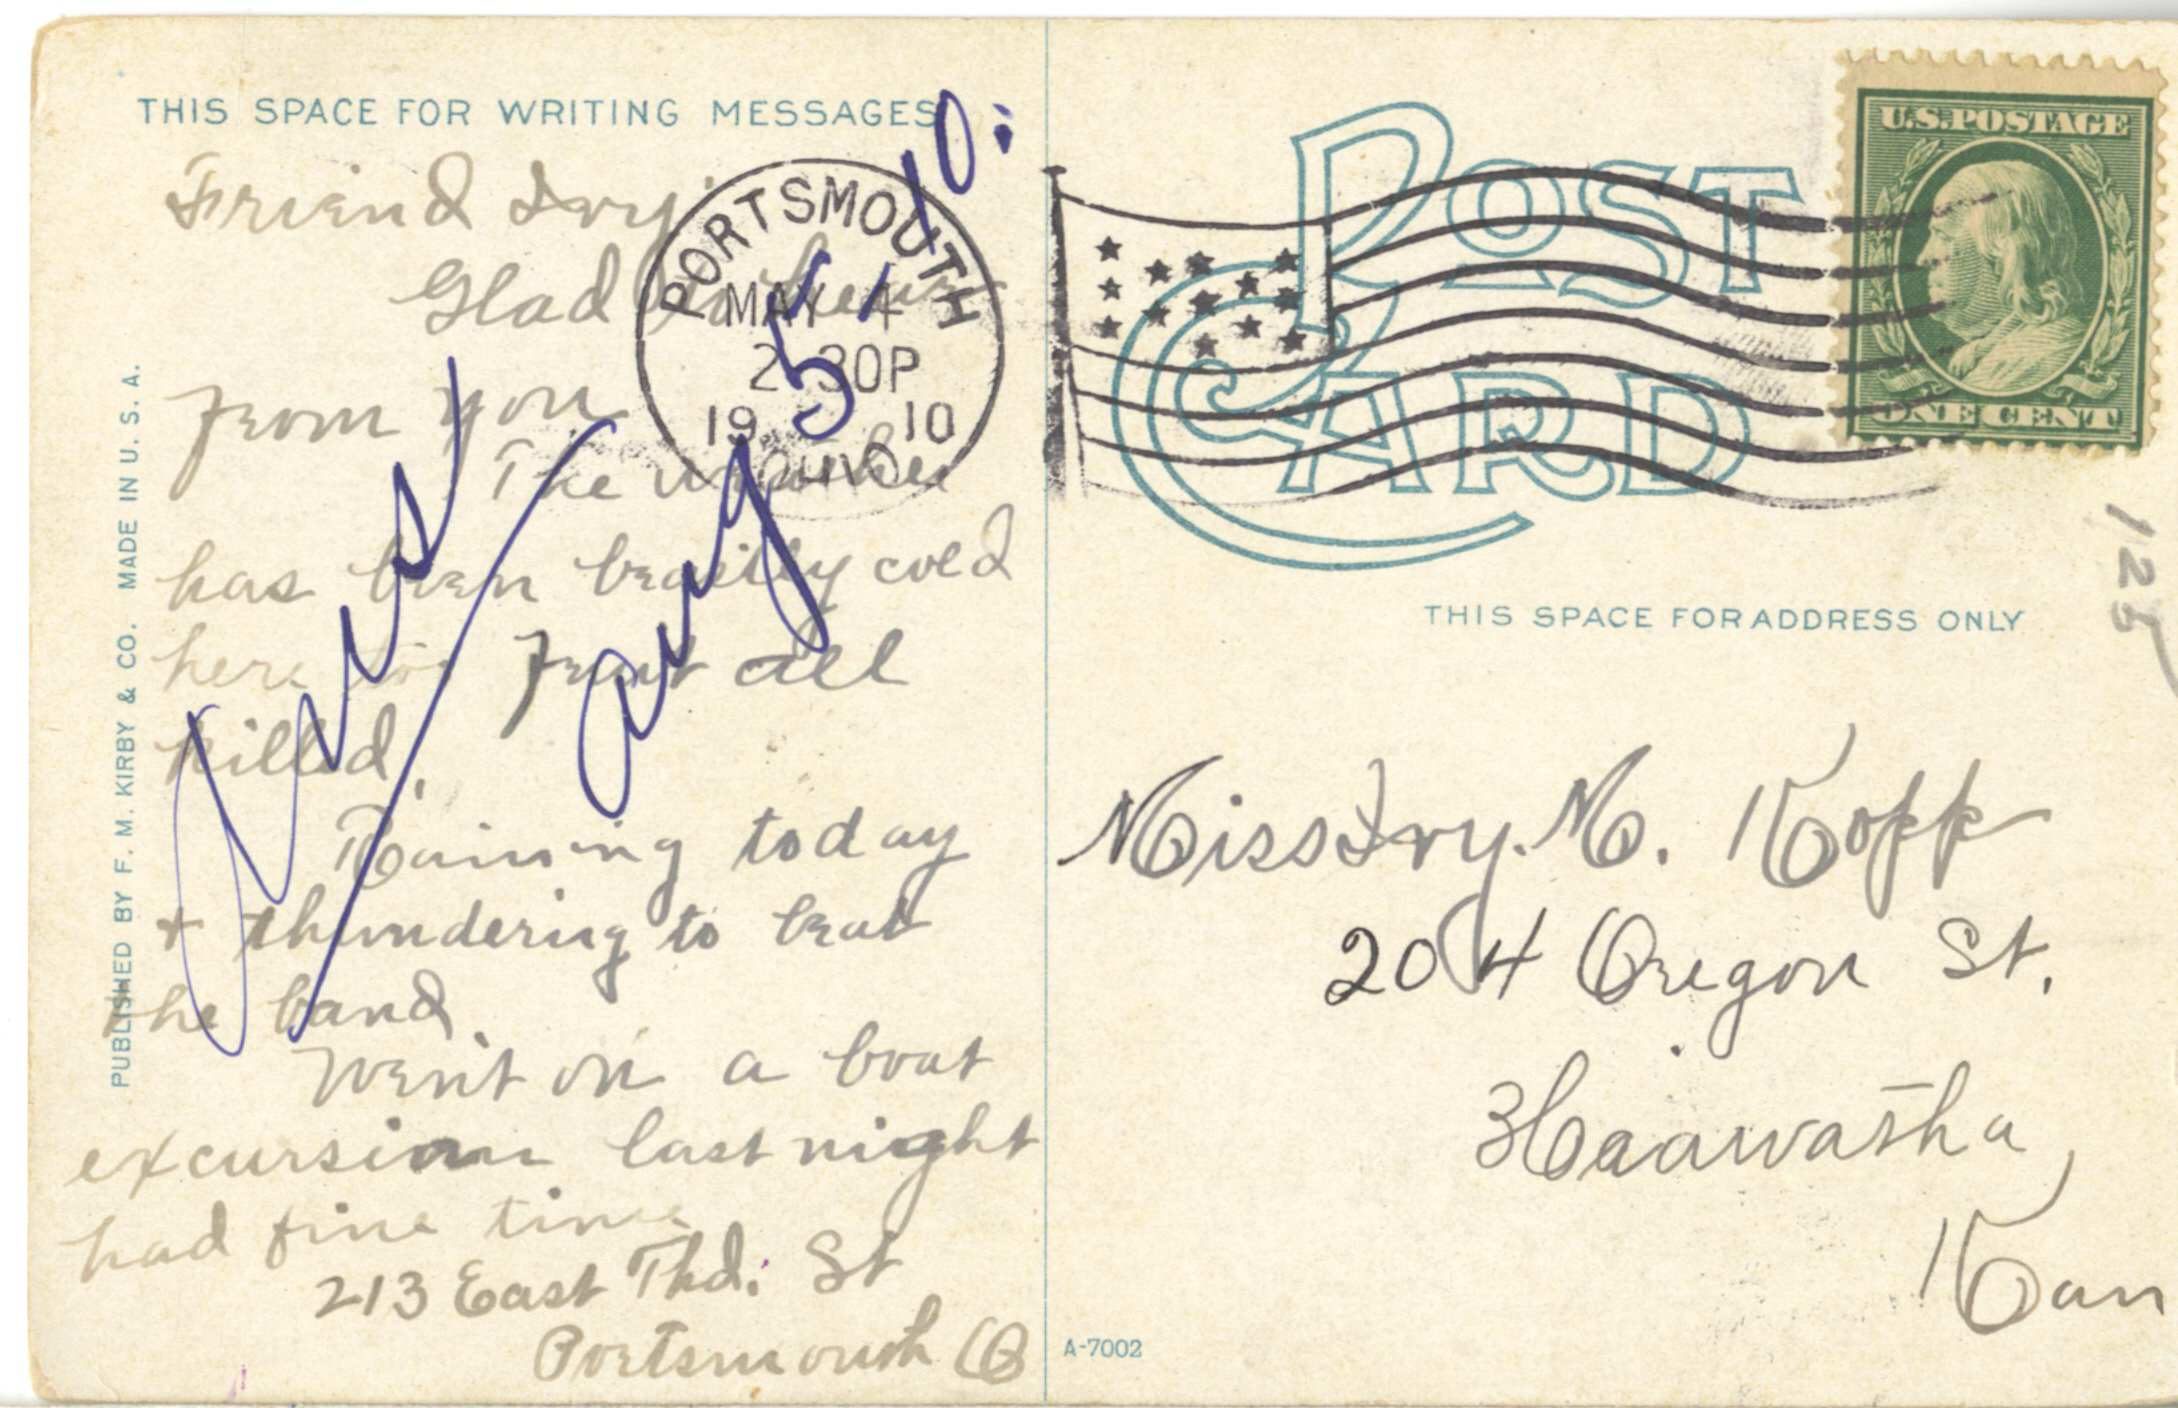 THIS SPACE FOR WRITING MESSAGES
Friend Ivy;
Glad to hear
from you
The weather
has been beastly cold
here too Fruit all
killed.
Raining today
+ thundering to beat
the band.
Went on a boat
excursion last night
had fine time
213 East Thd. St
Portsmouth O
Ans
Aug 5, 10:
PORTSMOUTH
MAY 4
2 30P
19 10
OHIO
PUBLISHED BY F. M. KIRBY & CO. MADE IN U. S. A.
POST
CARD
U.S.POSTAGE
ONE CENT
THIS SPACE FOR ADDRESS ONLY
Miss Ivy. M. Kopp
204 Oregon St.
Haawatha,
Kan
A-7002